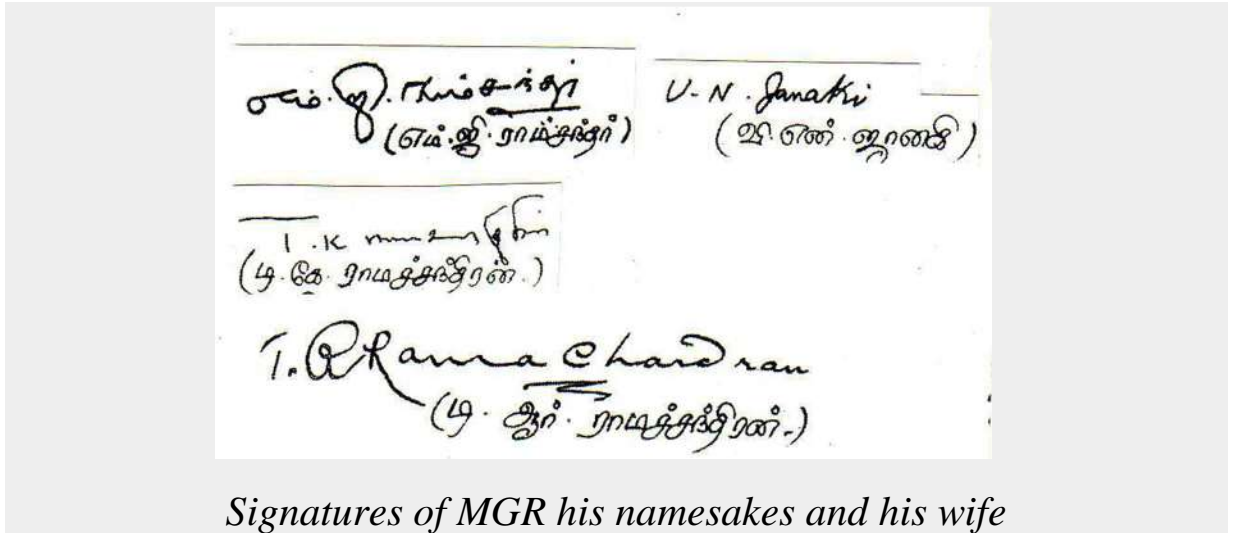 எம். ஜி. ராம்சந்தர்
(எம்.ஜி.ராம்சந்தர்)
V. N. Janaki
(வி.எண்.ஜானகி)
T.K
(டி.கே.ராமச்சந்திரன்.)
T. R Rama Chandran
(டி. ஆர். ராமச்சந்திரன்.)
Signatures of MGR his namesakes and his wife